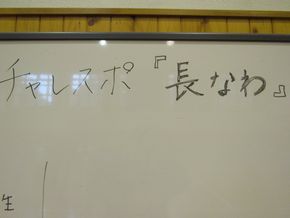 チャレスポ『長なわ』
生